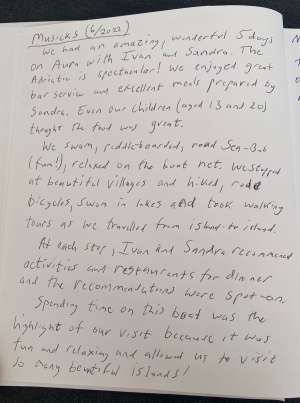 Musicks (6/2022)
We had an amazing, wonderful 5 days
on Aura with Ivan and Sandra. The
Adriatic is spectacular! We enjoyed great
bar service and excellent meals prepared by
Sandra. Even our children (aged 13 and 20)
thought the food was great.
We swam, paddleboarded, road Sea-Bob
(fun!), relaxed on the boat net. We stopped
at beautiful villages and hiked, rode
bicycles, swam in lakes and took walking
tours as we travelled from island to island.
At each stop, Ivan and Sandra recommended
activities and restaurants for dinner
and the recommendations were spot-on.
Spending time on this boat was the
highlight of our visit because it was
fun and relaxing and allowed us to visit
so many beautiful islands!